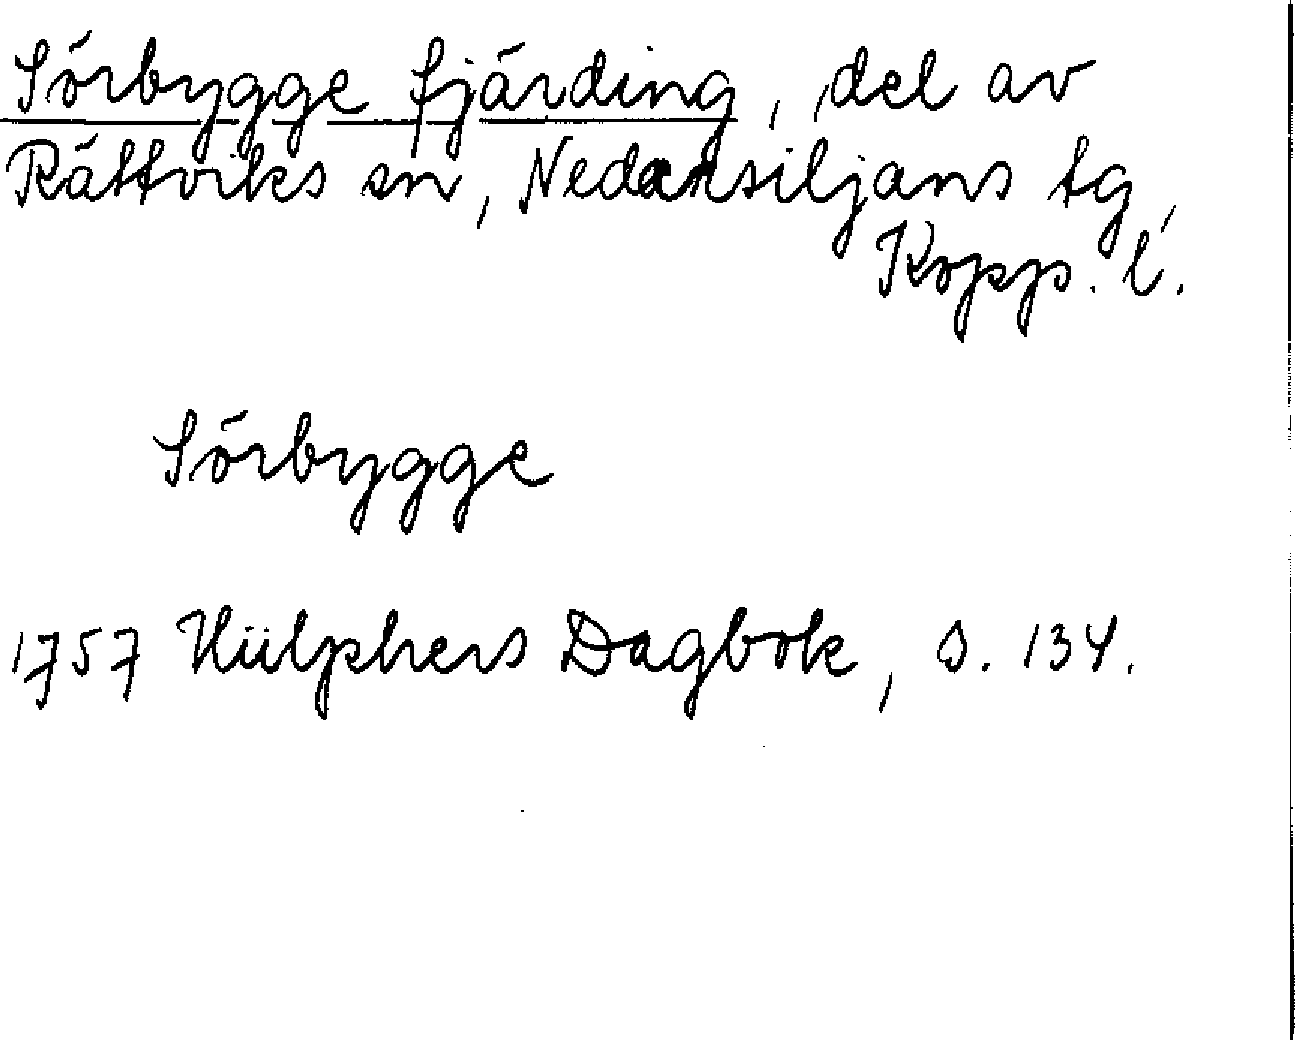 Sörbygge fjärding, del av
Rättviks sn, Nedansiljans tg,
Kopp. l.
Sörbygge
1757 Hülphers Dagbok, s. 134.